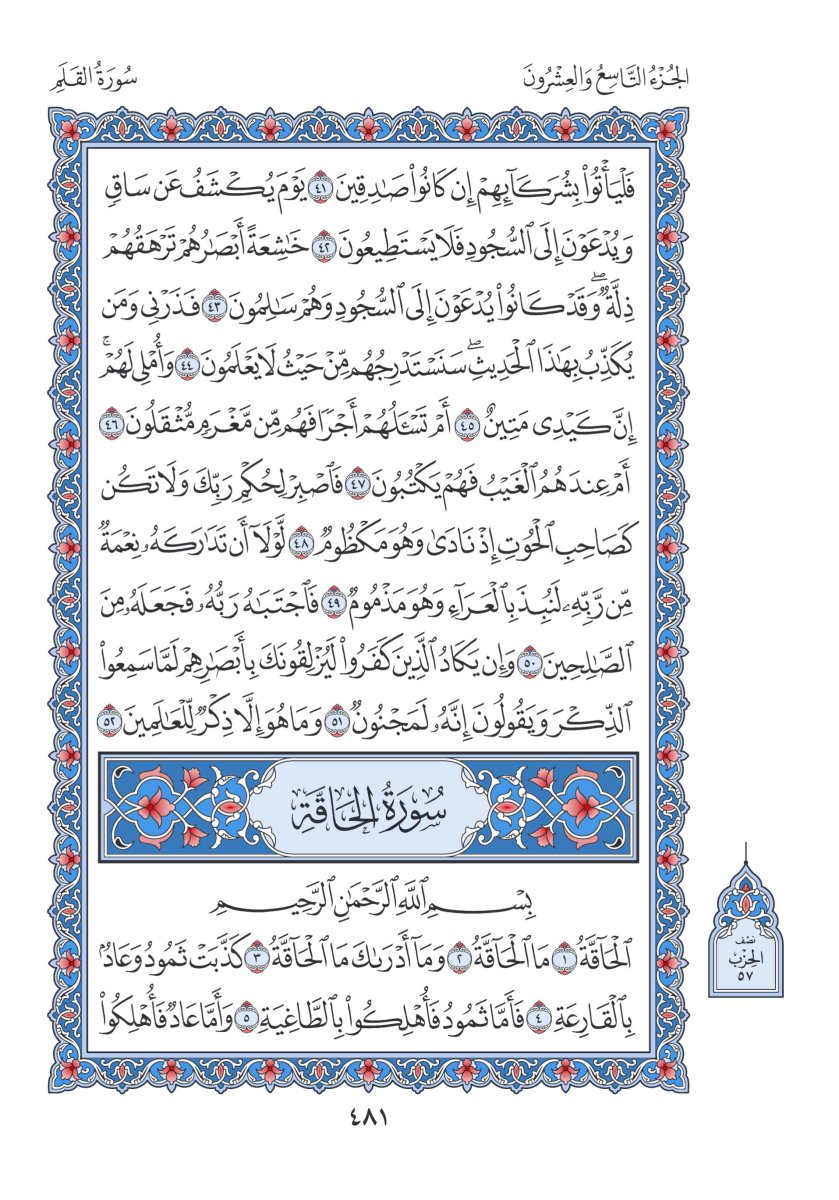 الجُزْءُ التَّاسِعُ وَالعِشْرُونَ
سُورَةُ القَلَمِ
فَلۡيَأۡتُواْ بِشُرَكَآئِهِمۡ إِن كَانُواْ صَٰدِقِينَ ٤١ يَوۡمَ يُكۡشَفُ عَن سَاقٖ
وَيُدۡعَوۡنَ إِلَى ٱلسُّجُودِ فَلَا يَسۡتَطِيعُونَ ٤٢ خَٰشِعَةً أَبۡصَٰرُهُمۡ تَرۡهَقُهُمۡ
ذِلَّةٞۖ وَقَدۡ كَانُواْ يُدۡعَوۡنَ إِلَى ٱلسُّجُودِ وَهُمۡ سَٰلِمُونَ ٤٣ فَذَرۡنِي وَمَن
يُكَذِّبُ بِهَٰذَا ٱلۡحَدِيثِۖ سَنَسۡتَدۡرِجُهُم مِّنۡ حَيۡثُ لَا يَعۡلَمُونَ ٤٤ وَأُمۡلِي لَهُمۡۚ
إِنَّ كَيۡدِي مَتِينٌ ٤٥ أَمۡ تَسۡـَٔلُهُمۡ أَجۡرٗا فَهُم مِّن مَّغۡرَمٖ مُّثۡقَلُونَ ٤٦
أَمۡ عِندَهُمُ ٱلۡغَيۡبُ فَهُمۡ يَكۡتُبُونَ ٤٧ فَٱصۡبِرۡ لِحُكۡمِ رَبِّكَ وَلَا تَكُن
كَصَاحِبِ ٱلۡحُوتِ إِذۡ نَادَىٰ وَهُوَ مَكۡظُومٞ ٤٨ لَّوۡلَآ أَن تَدَٰرَكَهُۥ نِعۡمَةٞ
مِّن رَّبِّهِۦ لَنُبِذَ بِٱلۡعَرَآءِ وَهُوَ مَذۡمُومٞ ٤٩ فَٱجۡتَبَٰهُ رَبُّهُۥ فَجَعَلَهُۥ مِنَ
ٱلصَّٰلِحِينَ ٥٠ وَإِن يَكَادُ ٱلَّذِينَ كَفَرُواْ لَيُزۡلِقُونَكَ بِأَبۡصَٰرِهِمۡ لَمَّا سَمِعُواْ
ٱلذِّكۡرَ وَيَقُولُونَ إِنَّهُۥ لَمَجۡنُونٞ ٥١ وَمَا هُوَ إِلَّا ذِكۡرٞ لِّلۡعَٰلَمِينَ ٥٢
سُورَةُ الحَاقَّةِ
بِسۡمِ ٱللَّهِ ٱلرَّحۡمَٰنِ ٱلرَّحِيمِ
ٱلۡحَآقَّةُ ١ مَا ٱلۡحَآقَّةُ ٢ وَمَآ أَدۡرَىٰكَ مَا ٱلۡحَآقَّةُ ٣ كَذَّبَتۡ ثَمُودُ وَعَادُۢ
بِٱلۡقَارِعَةِ ٤ فَأَمَّا ثَمُودُ فَأُهۡلِكُواْ بِٱلطَّاغِيَةِ ٥ وَأَمَّا عَادٞ فَأُهۡلِكُواْ
نصف
الحزب
٥٧
٤٨١